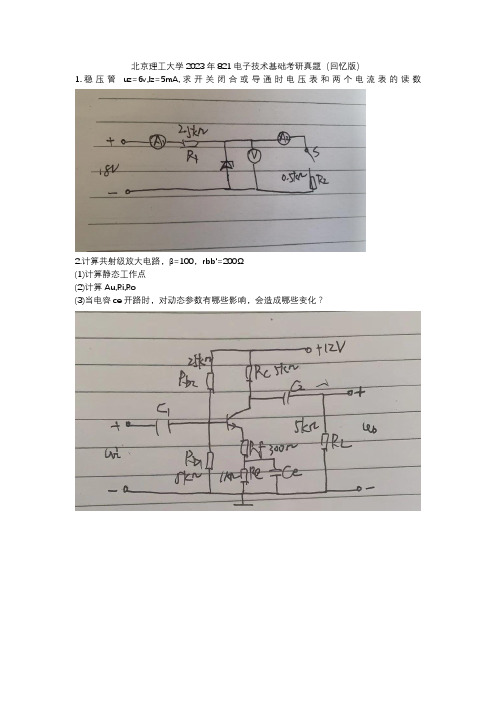 北京理工大学2023年821电子技术基础考研真题（回忆版）
1.稳压管 uz=6v,Iz=5mA,求开关闭合或导通时电压表和两个电流表的读数
+ A1 2.5kΩ A2
R1 V S
18V 0.5kΩ R2
−
2.计算共射级放大电路，β=100，rbb'=200Ω
(1)计算静态工作点
(2)计算Au,Ri,Ro
(3)当电容ce开路时，对动态参数有哪些影响，会造成哪些变化？
+12V
25kΩ Rc 5kΩ
Rb2 C2 +
C1 5kΩ uo
+ Rf 300Ω RL
ui Rb1
8kΩ 1kΩ Re Ce
− −